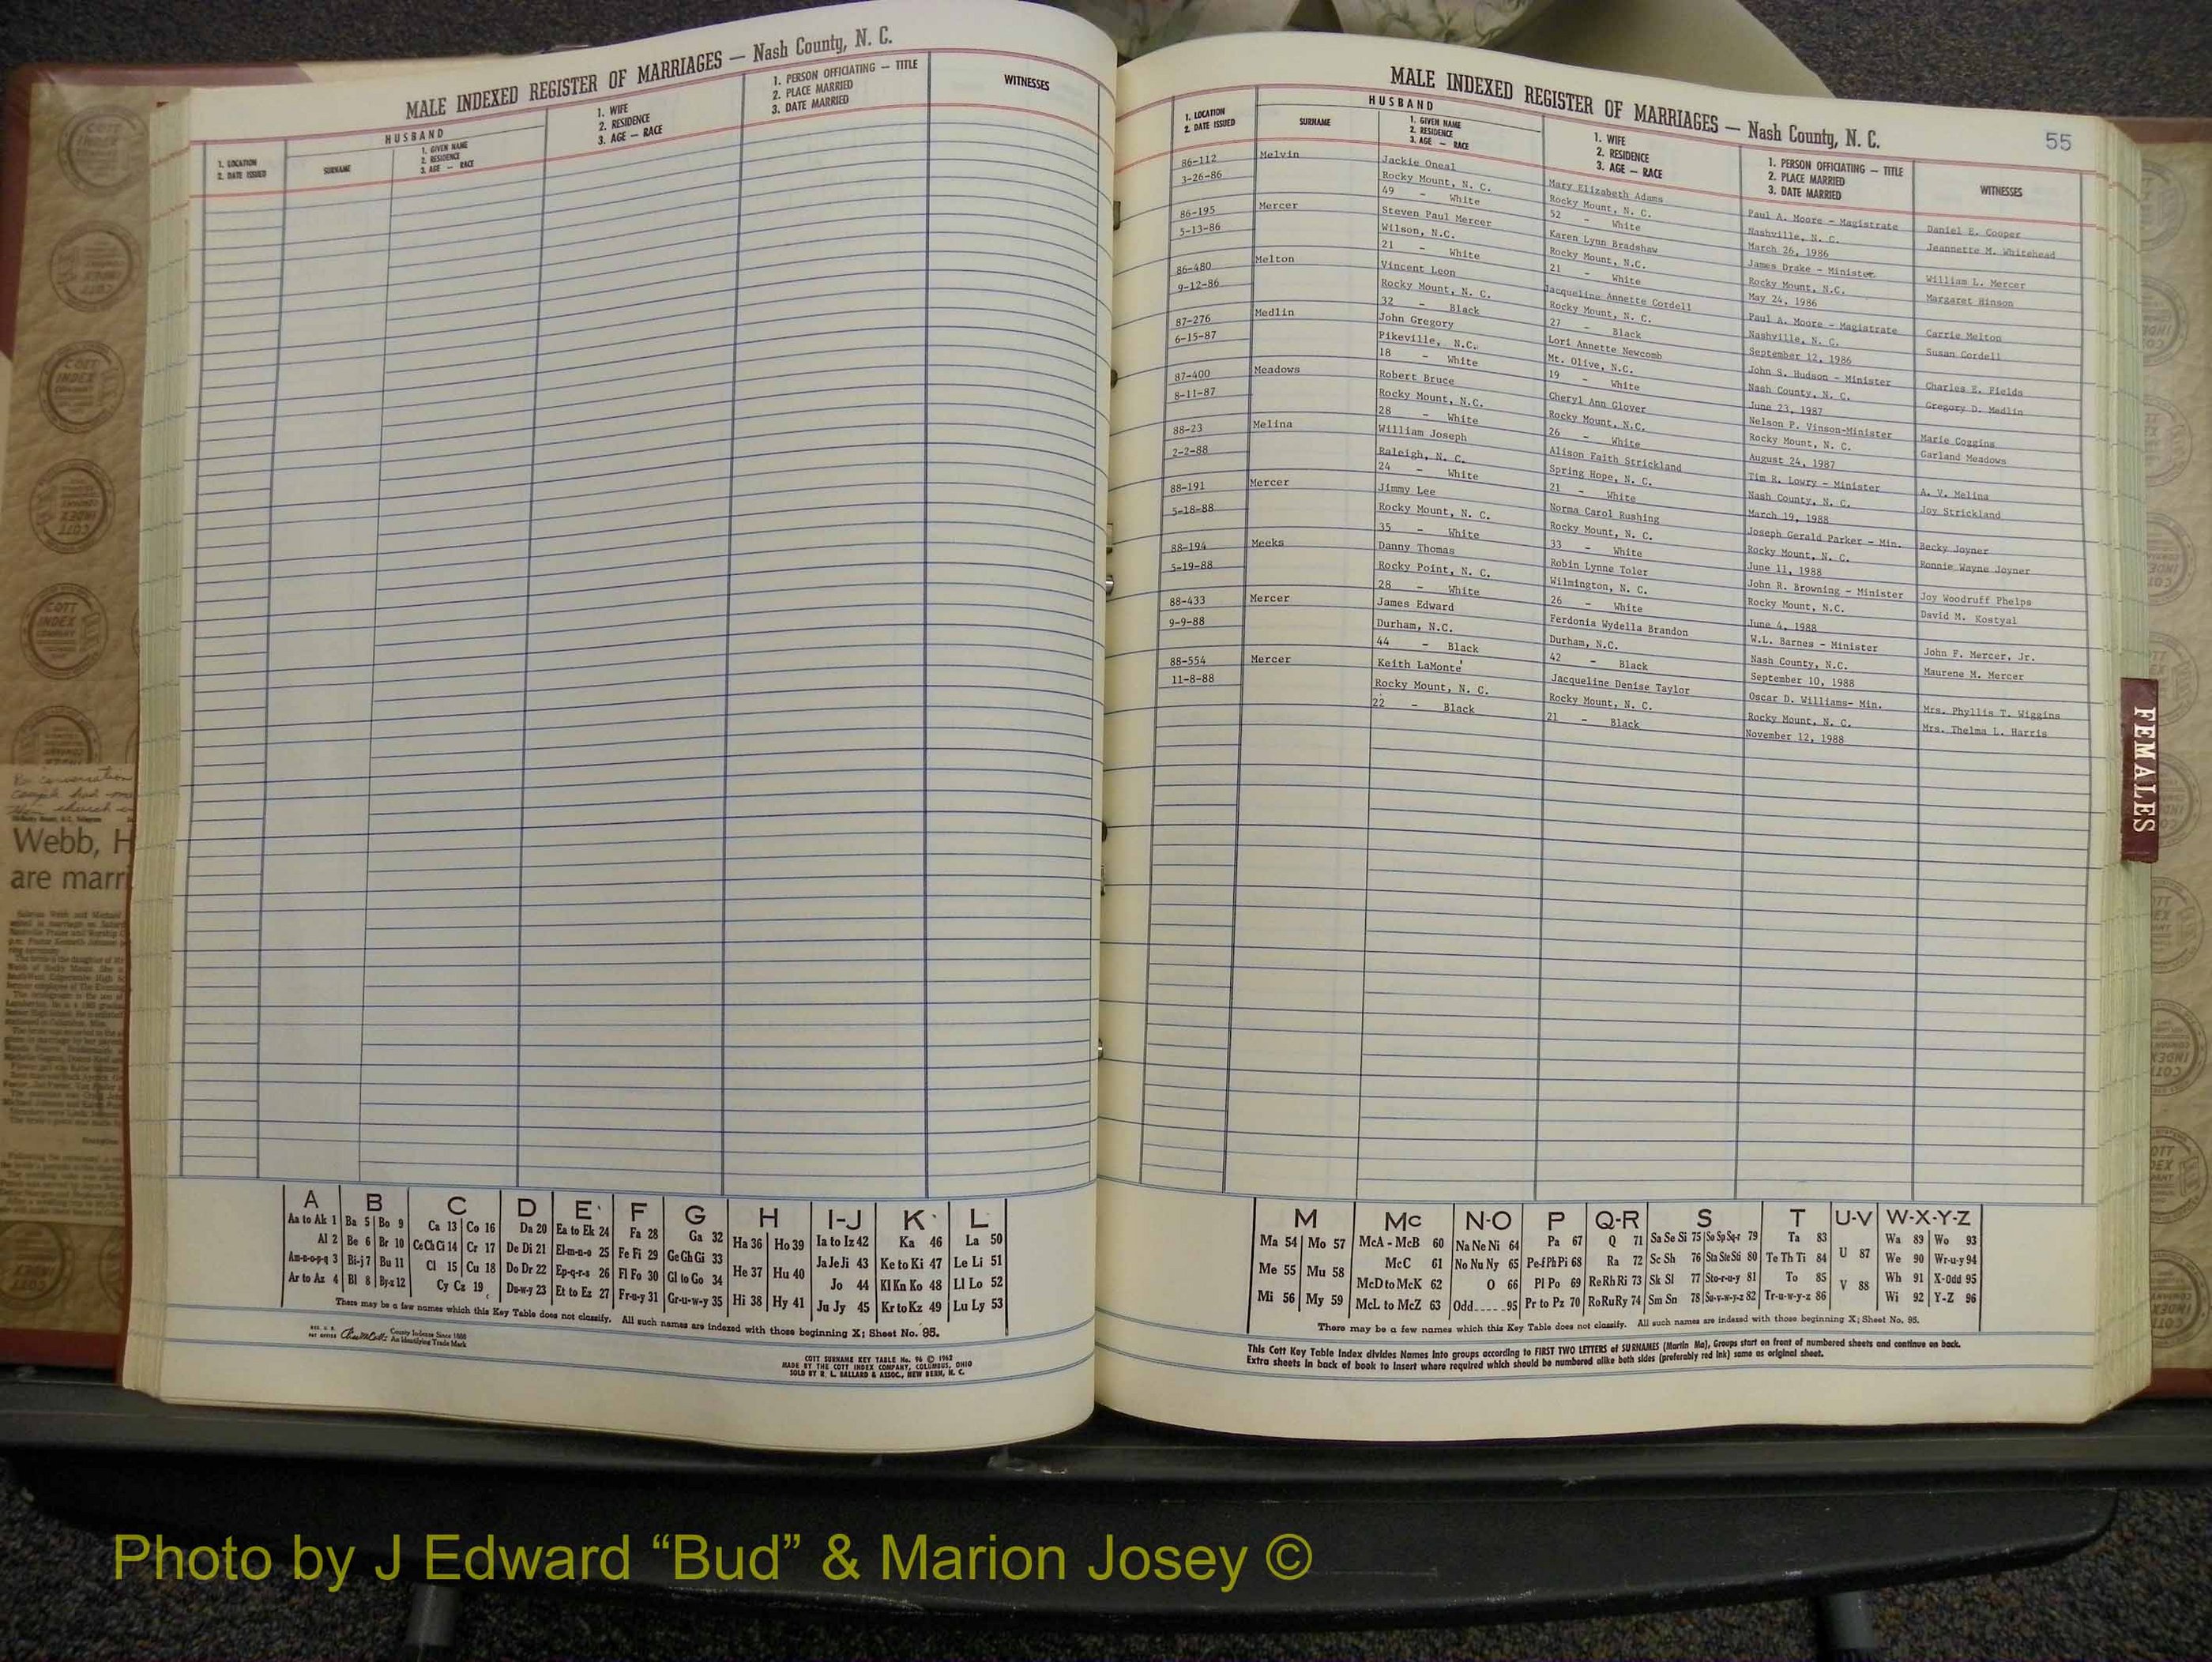 MALE INDEXED REGISTER OF MARRIAGES — Nash County, N. C.
1. LOCATION
2. DATE ISSUED
HUSBAND
SURNAME
1. GIVEN NAME
2. RESIDENCE
3. AGE — RACE
1. WIFE
2. RESIDENCE
3. AGE — RACE
1. PERSON OFFICIATING — TITLE
2. PLACE MARRIED
3. DATE MARRIED
WITNESSES
A B C D E F G H I-J K L
Aa to Ak 1 Ba 5 Bo 9 Ca 13 Co 16 Da 20 Ea to Ek 24 Fa 28 Ga 32 Ha 36 Ho 39 Ia to Iz 42 Ka 46 La 50
Al 2 Be 6 Br 10 Ce Ch Ci 14 Cr 17 De Di 21 El-m-n-o 25 Fe Fi 29 Ge Gh Gi 33 He 37 Hu 40 Ja Je Ji 43 Ke to Ki 47 Le Li 51
Am-n-o-p-q 3 Bi-j 7 Bu 11 Cl 15 Cu 18 Do Dr 22 Ep-q-r-s 26 Fl Fo 30 Gl to Go 34 Jo 44 Kl Kn Ko 48 Ll Lo 52
Ar to Az 4 Bl 8 By-z 12 Cy Cz 19 Du-w-y 23 Et to Ez 27 Fr-u-y 31 Gr-u-w-y 35 Hi 38 Hy 41 Ju Jy 45 Kr to Kz 49 Lu Ly 53
There may be a few names which this Key Table does not classify. All such names are indexed with those beginning X; Sheet No. 95.
County Indexes Since 1888
An Identifying Trade Mark
COTT SURNAME KEY TABLE No. 96 © 1962
MADE BY THE COTT INDEX COMPANY, COLUMBUS, OHIO
SOLD BY R. L. BALLARD & ASSOC., NEW BERN, N. C.
MALE INDEXED REGISTER OF MARRIAGES — Nash County, N. C.
55
1. LOCATION
2. DATE ISSUED
HUSBAND
SURNAME
1. GIVEN NAME
2. RESIDENCE
3. AGE — RACE
1. WIFE
2. RESIDENCE
3. AGE — RACE
1. PERSON OFFICIATING — TITLE
2. PLACE MARRIED
3. DATE MARRIED
WITNESSES
86-112 Melvin Jackie Oneal Mary Elizabeth Adams Paul A. Moore - Magistrate Daniel E. Cooper
3-26-86 Rocky Mount, N. C. Rocky Mount, N. C. Nashville, N. C. Jeannette M. Whitehead
49 - White 52 - White March 26, 1986
86-195 Mercer Steven Paul Mercer Karen Lynn Bradshaw James Drake - Minister William L. Mercer
5-13-86 Wilson, N.C. Rocky Mount, N.C. Rocky Mount, N.C. Margaret Hinson
21 - White 21 - White May 24, 1986
86-480 Melton Vincent Leon Jacqueline Annette Cordell Paul A. Moore - Magistrate Carrie Melton
9-12-86 Rocky Mount, N. C. Rocky Mount, N. C. Nashville, N. C. Susan Cordell
32 - Black 27 - Black September 12, 1986
87-276 Medlin John Gregory Lori Annette Newcomb John S. Hudson - Minister Charles E. Fields
6-15-87 Pikeville, N.C. Mt. Olive, N.C. Nash County, N. C. Gregory D. Medlin
18 - White 19 - White June 23, 1987
87-400 Meadows Robert Bruce Cheryl Ann Glover Nelson P. Vinson-Minister Marie Coggins
8-11-87 Rocky Mount, N.C. Rocky Mount, N.C. Rocky Mount, N. C. Garland Meadows
28 - White 26 - White August 24, 1987
88-23 Melina William Joseph Alison Faith Strickland Tim R. Lowry - Minister A. V. Melina
2-2-88 Raleigh, N. C. Spring Hope, N. C. Nash County, N. C. Joy Strickland
24 - White 21 - White March 19, 1988
88-191 Mercer Jimmy Lee Norma Carol Rushing Joseph Gerald Parker - Min. Becky Joyner
5-18-88 Rocky Mount, N. C. Rocky Mount, N. C. Rocky Mount, N. C. Ronnie Wayne Joyner
35 - White 33 - White June 11, 1988
88-194 Meeks Danny Thomas Robin Lynne Toler John R. Browning - Minister Joy Woodruff Phelps
5-19-88 Rocky Point, N. C. Wilmington, N. C. Rocky Mount, N.C. David M. Kostyal
28 - White 26 - White June 4, 1988
88-433 Mercer James Edward Ferdonia Wydella Brandon W.L. Barnes - Minister John F. Mercer, Jr.
9-9-88 Durham, N.C. Durham, N.C. Nash County, N.C. Maurene M. Mercer
44 - Black 42 - Black September 10, 1988
88-554 Mercer Keith LaMonte' Jacqueline Denise Taylor Oscar D. Williams- Min. Mrs. Phyllis T. Wiggins
11-8-88 Rocky Mount, N. C. Rocky Mount, N. C. Rocky Mount, N. C. Mrs. Thelma L. Harris
22 - Black 21 - Black November 12, 1988
FEMALES
M Mc N-O P Q-R S T U-V W-X-Y-Z
Ma 54 Mo 57 McA - McB 60 Na Ne Ni 64 Pa 67 Q 71 Sa Se Si 75 So Sp Sq-r 79 Ta 83 U 87 Wa 89 Wo 93
Me 55 Mu 58 McC 61 No Nu Ny 65 Pe-f Ph Pi 68 Ra 72 Sc Sh 76 Sta Ste Sti 80 Te Th Ti 84 We 90 Wr-u-y 94
McD to McK 62 O 66 Pl Po 69 Re Rh Ri 73 Sk Sl 77 Sto-r-u-y 81 To 85 V 88 Wh 91 X-Odd 95
Mi 56 My 59 McL to McZ 63 Odd 95 Pr to Pz 70 Ro Ru Ry 74 Sm Sn 78 Su-v-w-y-z 82 Tr-u-w-y-z 86 Wi 92 Y-Z 96
There may be a few names which this Key Table does not classify. All such names are indexed with those beginning X; Sheet No. 95.
This Cott Key Table Index divides Names into groups according to FIRST TWO LETTERS of SURNAMES (Martin Ma), Groups start on front of numbered sheets and continue on back.
Extra sheets in back of book to insert where required which should be numbered alike both sides (preferably red ink) same as original sheet.
Webb, H
are marri
COTT
INDEX
COMPANY
Photo by J Edward “Bud” & Marion Josey ©